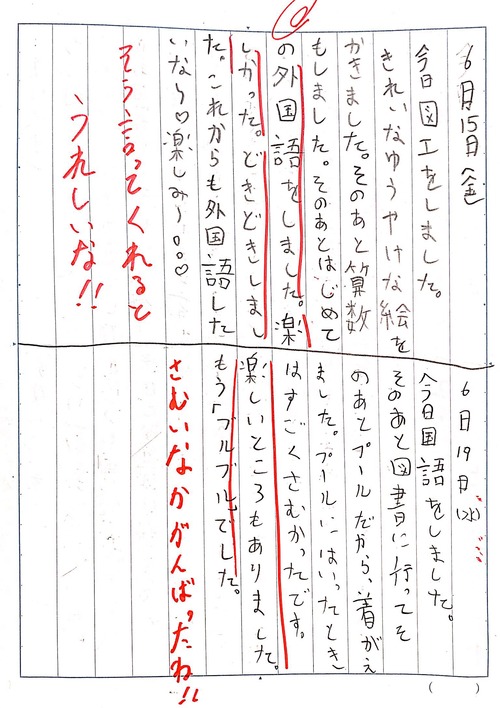 6月15日(金)
今日図工をしました。
きれいなゆうやけな絵を
かきました。そのあと算数
もしました。そのあとはじめて
の外国語をしました。楽
しかった。どきどきしまし
た。これからも外国語した
いな～♡楽しみ～○○○♡
そう言ってくれると
うれしいな!!
6月19日(水)
今日国語をしました。
そのあと図書に行ってそ
のあとプールだから、着がえ
ました。プールにはいったとき
はすごくさむかったです。
楽しいところもありました。
もう「ブルブル」でした。
さむいなかがんばったね!!
( )